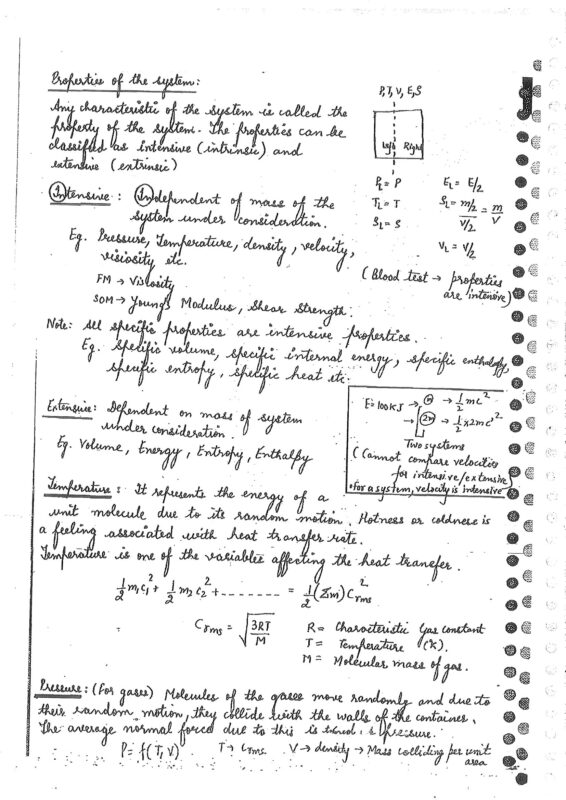 Properties of the system:
P, T, V, E, S
Any characteristic of the system is called the
property of the system. The properties can be
classified as intensive (intrinsic) and
extensive (extrinsic)
Left Right
P_L = P E_L = E/2
T_L = T S_L = m/2 / V/2 = m/V
S_L = S V_L = V/2
Intensive : Independent of mass of the
system under consideration.
Eg. Pressure, Temperature, density, velocity,
visiosity etc.
(Blood test → properties
are intensive)
FM → Viscosity
SOM → Young's Modulus, Shear Strength.
Note: All specific properties are intensive properties.
Eg. Specific volume, specific internal energy, specific enthalpy,
specific entropy, specific heat etc.
Extensive: Dependent on mass of system
under consideration.
Eg. Volume, Energy, Entropy, Enthalpy
E=100KJ → m → 1/2 mc²
→ 2m → 1/2 x 2mc'²
Two systems
(Cannot compare velocities
for intensive/extensive)
• For a system, velocity is intensive
Temperature : It represents the energy of a
unit molecule due to its random motion. Hotness or coldness is
a feeling associated with heat transfer rate.
Temperature is one of the variables affecting the heat transfer.
1/2 m₁c₁² + 1/2 m₂c₂² + ------- = 1/2 (Σm) C²rms
Crms = √(3RT/M) R = Characteristic Gas constant
T = Temperature (K).
M = Molecular mass of gas.
Pressure : (For gases) Molecules of the gases move randomly and due to
their random motion, they collide with the walls of the container.
The average normal force due to this is pressure.
P = f(T, V) T → Crms V → density → Mass colliding per unit
area